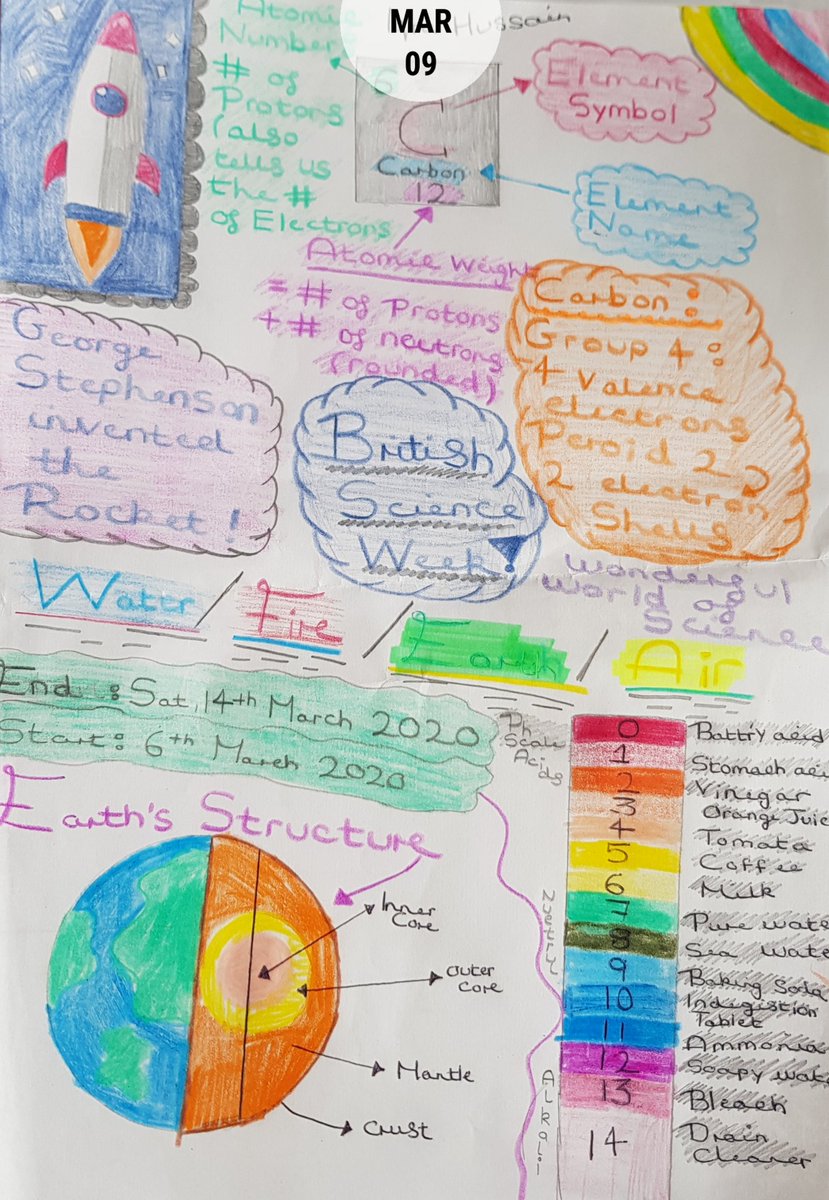 MAR
09
Hussain
Atomic
Number
# of
Protons
(also
tells us
the #
of Electrons
6
C
Carbon
12
Element
Symbol
Element
Name
Atomic Weight
= # of Protons
+ # of neutrons
(rounded)
Carbon :
Group 4 :
4 Valence
electrons
Peroid 2 :
2 electron
Shells
George
Stephenson
invented
the
Rocket !
British
Science
Week!
Wonderful
World of
Science
Water / Fire / Earth / Air
End : Sat, 14th March 2020
Start : 6th March 2020
Ph
Scale
Acids
Neutrul
Alkali
0 Battry acid
1 Stomach aci
2 Vinegar
3 Orange Juic
4 Tomata
5 Coffee
6 Milk
7 Pure wate
8 Sea wate
9 Baking Soda
10 Indigistion
Tablet
11 Ammonia
12 Soapy wat
13 Bleach
14 Drain
Cleaner
Earth's Structure
Inner
Core
outer
core
Mantle
Crust